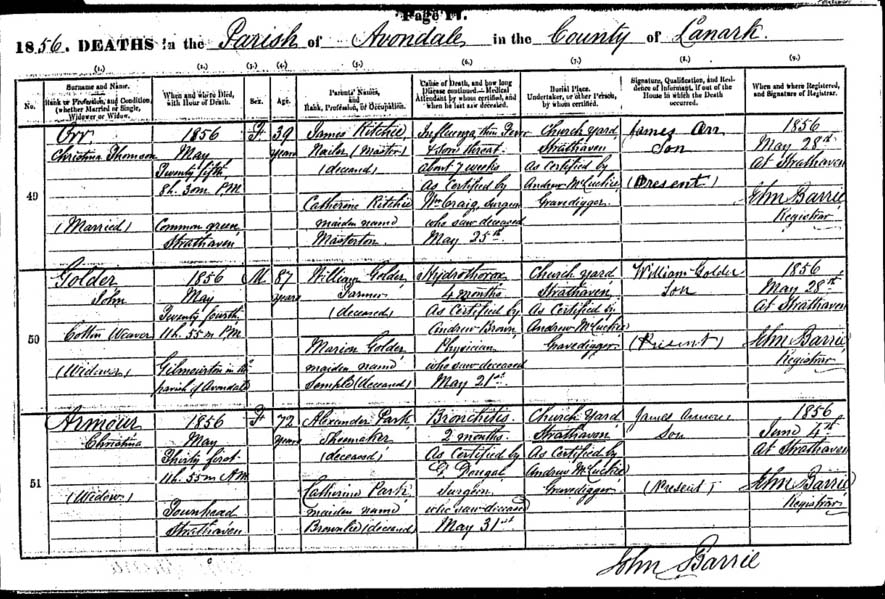 Page 17.
1856. DEATHS in the Parish of Avondale in the County of Lanark.
(1.) (2.) (3.) (4.) (5.) (6.) (7.) (8.) (9.)
No.
Surname and Name.
Rank or Profession, and Condition,
(whether Married or Single,
Widower or Widow.
When and where Died,
with Hour of Death.
Sex.
Age.
Parents' Names,
and
Rank, Profession, or Occupation.
Cause of Death, and how long
Disease continued—Medical
Attendant by whom certified, and
when he last saw deceased.
Burial Place.
Undertaker, or other Person,
by whom certified.
Signature, Qualification, and Resi-
dence of Informant, if out of the
House in which the Death
occurred.
When and where Registered,
and Signature of Registrar.
49
Orr
Christina Thomson
(Married)
1856
May
Twenty fifth
8h. 30m P.M.
Common green
Strathaven
F.
39
years
James Ritchie
Nailer (Master)
(deceased)
Catherine Ritchie
maiden name
Masterton
Influenza, then Fever
& Sore throat
about 7 weeks
As Certified by
Wm Craig, Surgeon
who saw deceased
May 25th
Church yard
Strathaven
As Certified by
Andrew McLuckie
Gravedigger
James Orr
Son
(Present)
1856
May 28th
At Strathaven
John Barrie
Registrar
50
Golder
John
Cotton Weaver
(Widower)
1856
May
Twenty fourth
11h. 55m P.M.
Gilmourton in the
parish of Avondale
M.
87
years
William Golder
Farmer
(deceased)
Marion Golder,
maiden name
Semple (deceased)
Hydrothorax
4 months
As Certified by
Andrew Brown,
Physician
who saw deceased
May 21st
Church yard
Strathaven,
As Certified by
Andrew McLuckie
Gravedigger
William Golder
Son
(Present)
1856
May 28th
At Strathaven
John Barrie
Registrar
51
Armour
Christina
(Widow)
1856
May
Thirty first
11h. 55m A.M.
Townhead
Strathaven
F.
72
years
Alexander Park
Shoemaker
(deceased)
Catherine Park
maiden name
Brownlie (deceased)
Bronchitis
2 months.
As Certified by
Dougal
Surgeon
who saw deceased
May 31st
Church Yard
Strathaven
As Certified by
Andrew McLuckie
Gravedigger
James Armour
Son
(Present)
1856
June 4th
At Strathaven
John Barrie
Registrar
John Barrie